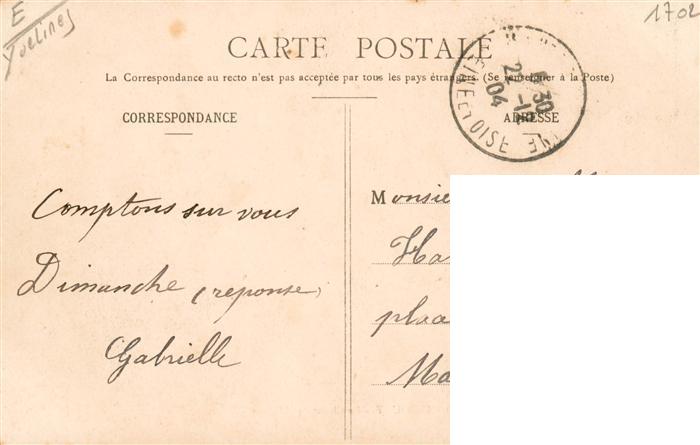 E
Yvelines
1702
CARTE POSTALE
La Correspondance au recto n'est pas acceptée par tous les pays étrangers. (Se renseigner à la Poste)
CORRESPONDANCE
ADRESSE
SEINE ET OISE
30
04
Comptons sur vous
Dimanche (reponse)
Gabrielle